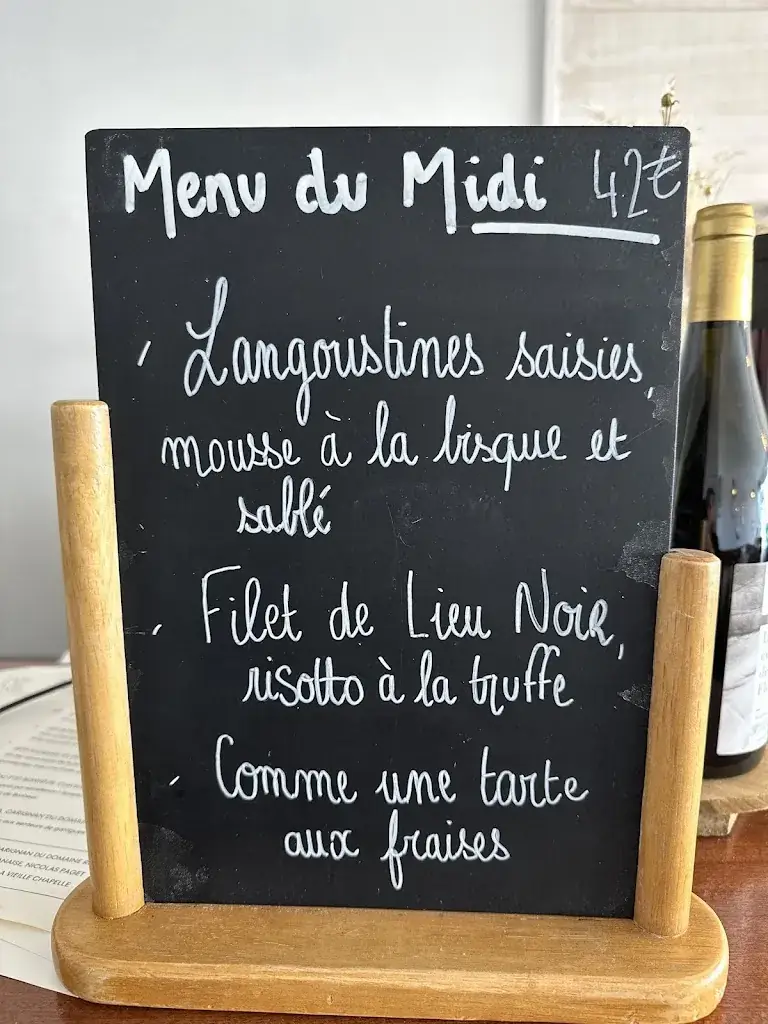 Menu du Midi 42€
Langoustines saisies,
mousse à la bisque et
sablé
Filet de Lieu Noir,
risotto à la truffe
Comme une tarte
aux fraises
CARIGNAN DU DOMAINE
NICOLAS PAGET
VIEILLE CHAPELLE